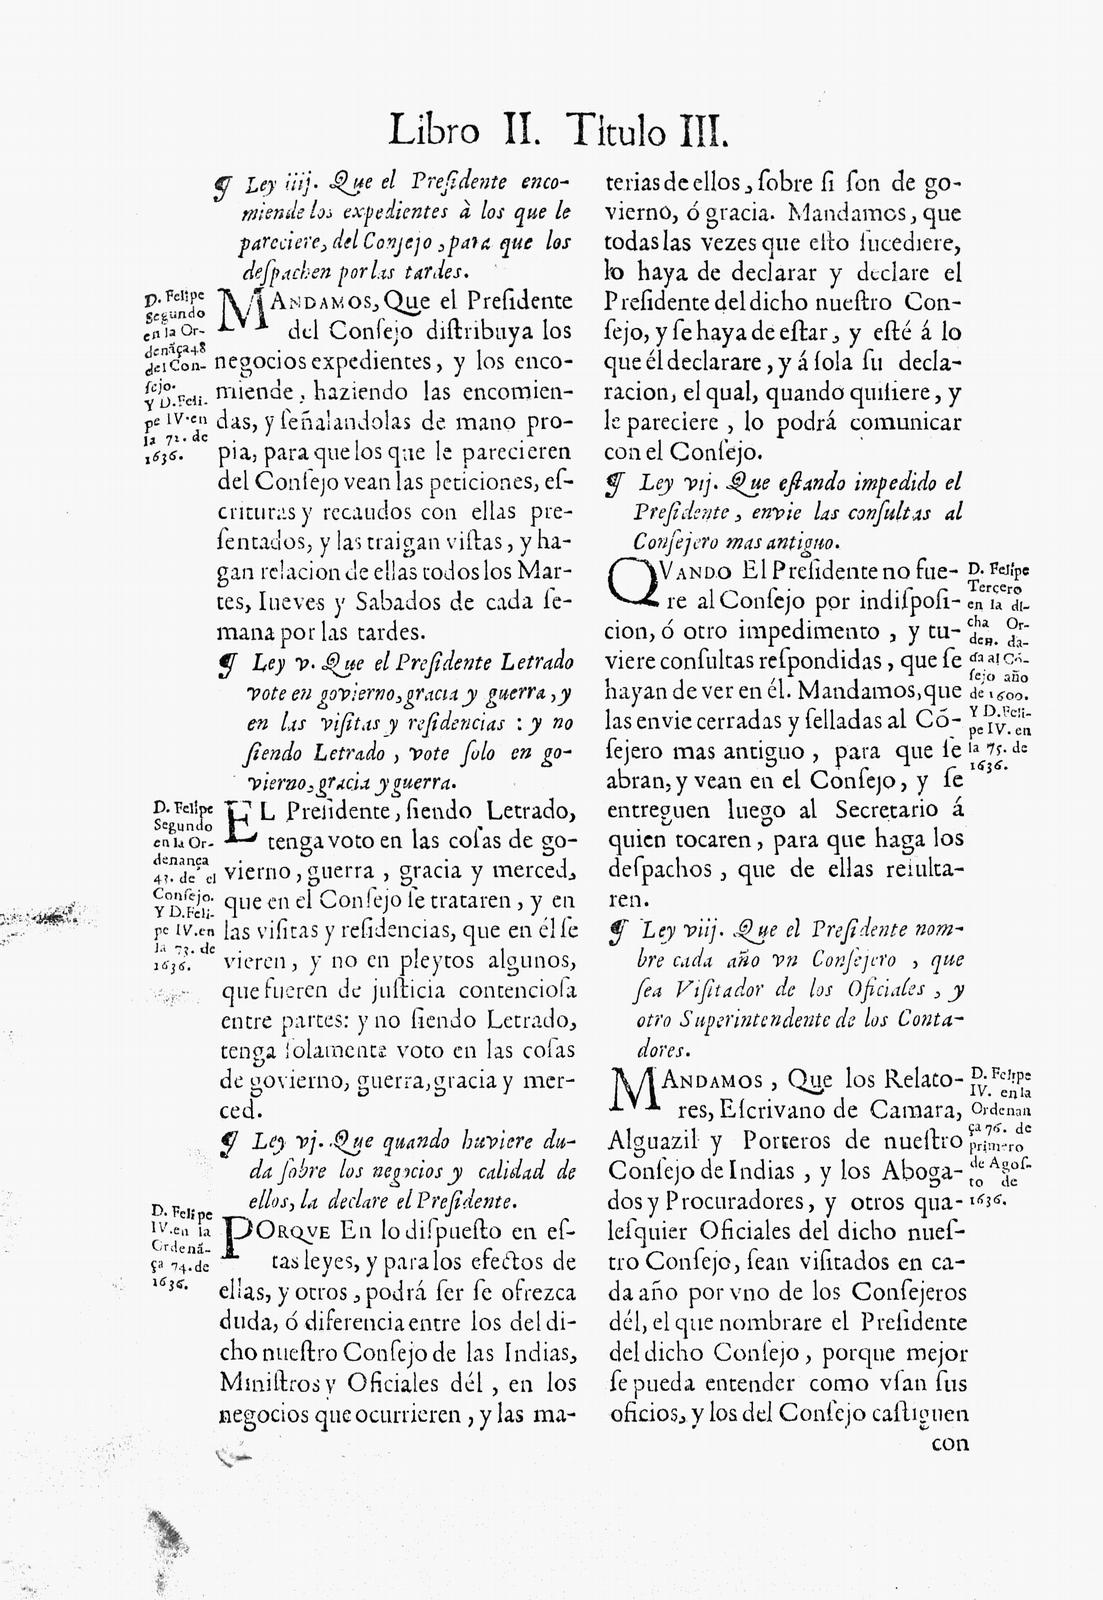 Libro II. Titulo III.
¶ Ley iiij. Que el Preſidente enco-
miende los expedientes à los que le
pareciere, del Conſejo, para que los
deſpachen por las tardes.
D. Felipe
Segundo
en la Or-
denãça 48
del Con-
ſejo.
Y D. Feli-
pe IV. en
la 71. de
1636.
MANDAMOS, Que el Preſidente
del Conſejo diſtribuya los
negocios expedientes, y los enco-
miende, haziendo las encomien-
das, y ſeñalandolas de mano pro-
pia, para que los que le parecieren
del Conſejo vean las peticiones, eſ-
crituras y recaudos con ellas pre-
ſentados, y las traigan viſtas, y ha-
gan relacion de ellas todos los Mar-
tes, Iueves y Sabados de cada ſe-
mana por las tardes.
¶ Ley v. Que el Preſidente Letrado
vote en govierno, gracia y guerra, y
en las viſitas y reſidencias : y no
ſiendo Letrado, vote ſolo en go-
vierno, gracia y guerra.
D. Felipe
Segundo
en la Or-
denança
43. de el
Conſejo.
Y D. Feli-
pe IV. en
la 73. de
1636.
EL Preſidente, ſiendo Letrado,
tenga voto en las coſas de go-
vierno, guerra, gracia y merced,
que en el Conſejo ſe trataren, y en
las viſitas y reſidencias, que en él ſe
vieren, y no en pleytos algunos,
que fueren de juſticia contencioſa
entre partes: y no ſiendo Letrado,
tenga ſolamente voto en las coſas
de govierno, guerra, gracia y mer-
ced.
¶ Ley vj. Que quando huviere du-
da ſobre los negocios y calidad de
ellos, la declare el Preſidente.
D. Felipe
IV. en la
Ordenã-
ça 74. de
1636.
PORQVE En lo diſpueſto en eſ-
tas leyes, y para los efectos de
ellas, y otros, podrá ſer ſe ofrezca
duda, ó diferencia entre los del di-
cho nueſtro Conſejo de las Indias,
Miniſtros y Oficiales dél, en los
negocios que ocurrieren, y las ma-
terias de ellos, ſobre ſi ſon de go-
vierno, ó gracia. Mandamos, que
todas las vezes que eſto ſucediere,
lo haya de declarar y declare el
Preſidente del dicho nueſtro Con-
ſejo, y ſe haya de eſtar, y eſté á lo
que él declarare, y á ſola ſu decla-
racion, el qual, quando quiſiere, y
le pareciere, lo podrá comunicar
con el Conſejo.
¶ Ley vij. Que eſtando impedido el
Preſidente, envie las conſultas al
Conſejero mas antiguo.
QVANDO El Preſidente no fue-
re al Conſejo por indiſpoſi-
cion, ó otro impedimento, y tu-
viere conſultas reſpondidas, que ſe
hayan de ver en él. Mandamos, que
las envie cerradas y ſelladas al Cõ-
ſejero mas antiguo, para que ſe
abran, y vean en el Conſejo, y ſe
entreguen luego al Secretario á
quien tocaren, para que haga los
deſpachos, que de ellas reſulta-
ren.
D. Felipe
Tercero
en la di-
cha Or-
den. da-
da al Cõ-
ſejo año
de 1600.
Y D. Feli-
pe IV. en
la 75. de
1636.
¶ Ley viij. Que el Preſidente nom-
bre cada año vn Conſejero, que
ſea Viſitador de los Oficiales, y
otro Superintendente de los Conta-
dores.
MANDAMOS, Que los Relato-
res, Eſcrivano de Camara,
Alguazil y Porteros de nueſtro
Conſejo de Indias, y los Aboga-
dos y Procuradores, y otros qua-
leſquier Oficiales del dicho nueſ-
tro Conſejo, ſean viſitados en ca-
da año por vno de los Conſejeros
dél, el que nombrare el Preſidente
del dicho Conſejo, porque mejor
ſe pueda entender como vſan ſus
oficios, y los del Conſejo caſtiguen
D. Felipe
IV. en la
Ordenan
ça 76. de
primero
de Agoſ-
to de
1636.
con